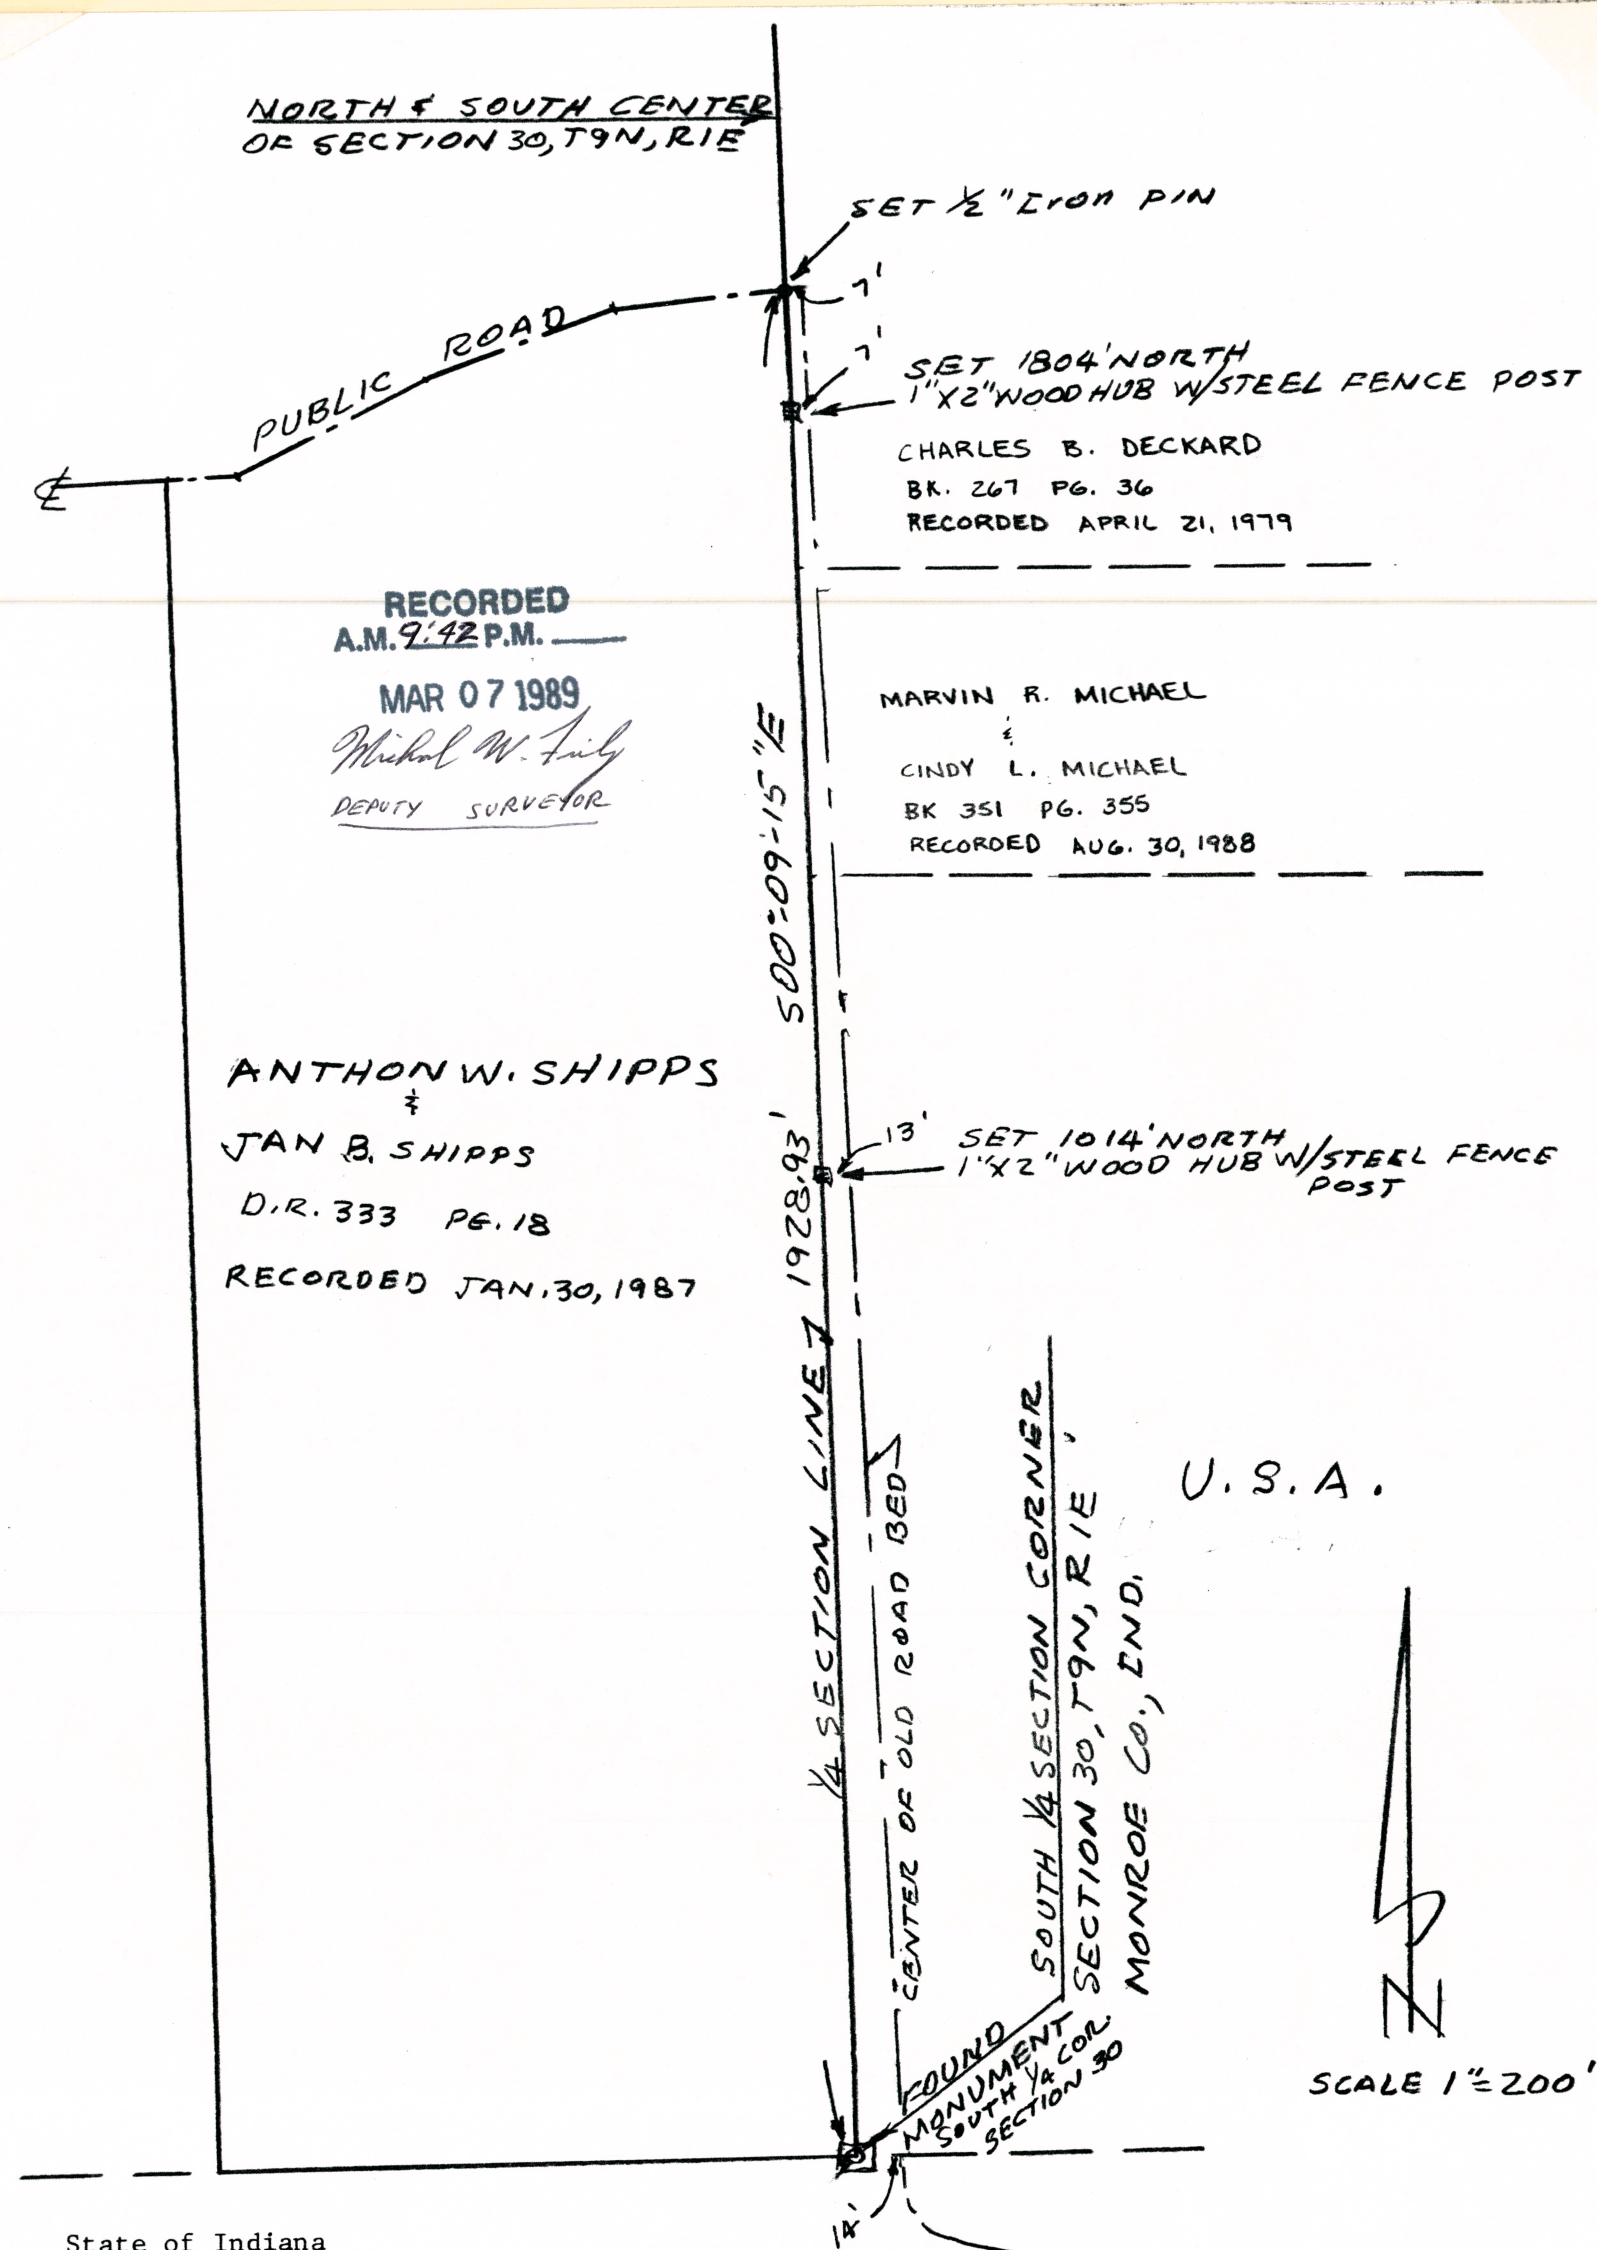 NORTH & SOUTH CENTER
OF SECTION 30, T9N, R1E
SET 1/2" Iron PIN
7'
7'
PUBLIC ROAD
SET 1804' NORTH
1"X2" WOOD HUB W/STEEL FENCE POST
CHARLES B. DECKARD
BK. 267 PG. 36
RECORDED APRIL 21, 1979
RECORDED
A.M. 9:42 P.M.
MAR 07 1989
DEPUTY SURVEYOR
MARVIN R. MICHAEL
&
CINDY L. MICHAEL
BK 351 PG. 355
RECORDED AUG. 30, 1988
1/4 SECTION LINE 1928.93' S00°-09'-15"E
ANTHON W. SHIPPS
&
JAN B. SHIPPS
D.R. 333 PG. 18
RECORDED JAN. 30, 1987
13'
SET 1014' NORTH
1"X2" WOOD HUB W/STEEL FENCE
POST
CENTER OF OLD ROAD BED
SOUTH 1/4 SECTION CORNER
SECTION 30, T9N, R1E
MONROE CO., IND.
U.S.A.
FOUND
MONUMENT
SOUTH 1/4 COR.
SECTION 30
N
SCALE 1"=200'
State of Indiana